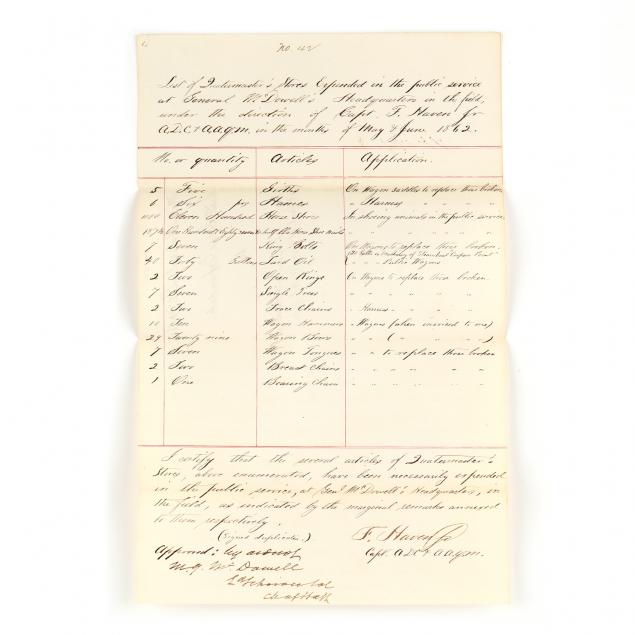 No 42
List of Quatermaster's Stores Expended in the public service
at General McDowell's Headquarters in the field,
under the direction of Capt. F. Haven Jr
A.D.C. & A.A.Q.M. in the months of May & June 1862.
No. or quantity Articles Application.
5 Five Girths On Wagon saddles to replace those broken
6 Six prs Hames " Harness " " "
1100 Eleven Hundred Horse Shoes In shoeing animals in the public service
One Hundred & eighty seven & half lbs Horse Shoe nails " " " "
7 Seven King Bolts On Wagons to replace those broken.
40 Forty Gallons Lard Oil Public Wagons
2 Two Open Rings On Wagons to replace those broken
7 Seven Single Trees " " " "
2 Two Trace Chains " Harness " " "
10 Ten Wagon Hammers " Wagons (when received to use)
29 Twenty nine Wagon Bows " " ( " " " )
7 Seven Wagon Tongues " " to replace those broken
2 Two Breast Chains " " " "
1 One Bearing Chain " " " "
I certify that the several articles of Quatermaster's
Stores, above enumerated, have been necessarily expended
in the public service, at Genl McDowell's Headquarters, in
the field, as indicated by the marginal remarks annexed
to them respectively.
(Signed duplicates.) F. Haven Jr
Approved: Capt. A.D.C. & A.A.Q.M.
M.G. McDowell
Col
Chief Staff